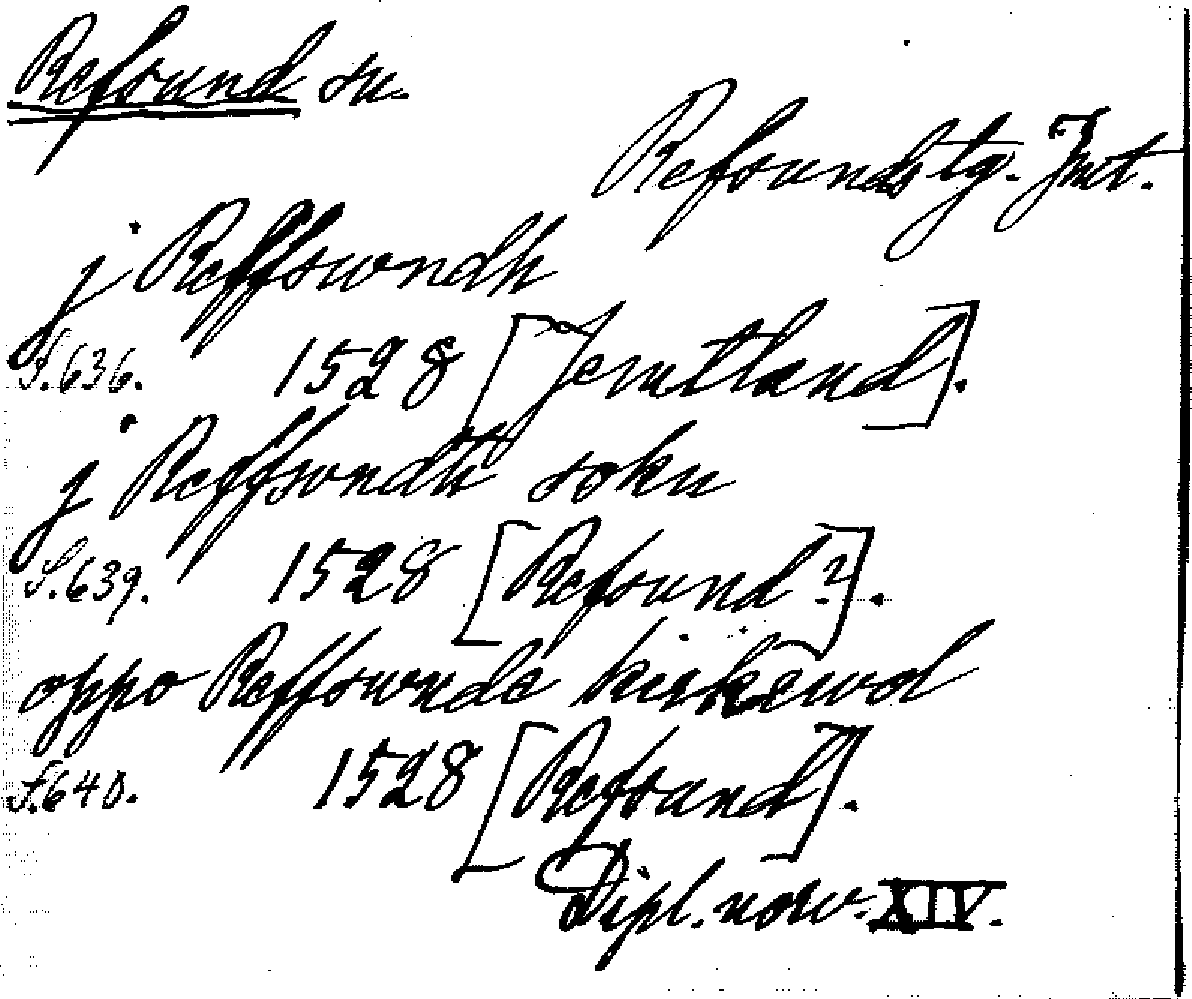 Refsund sn.
Refsunds tg. Jmt.
j Reffswndh
S.636. 1528 [Jemtland].
j Reffswndh sokn
S.639. 1528 [Refsund?].
oppo Reffswnde kirkewol
S.640. 1528 [Refsund].
Dipl. norv. XIV.